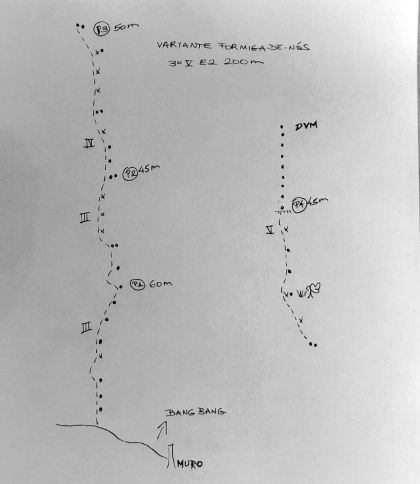 P3 50m
VARIANTE FORMIGA-DE-NÓS
3º V E2 200m
DVM
IV
P2 45m
P4 45m
III
V
P1 60m
III
BANG BANG
MURO